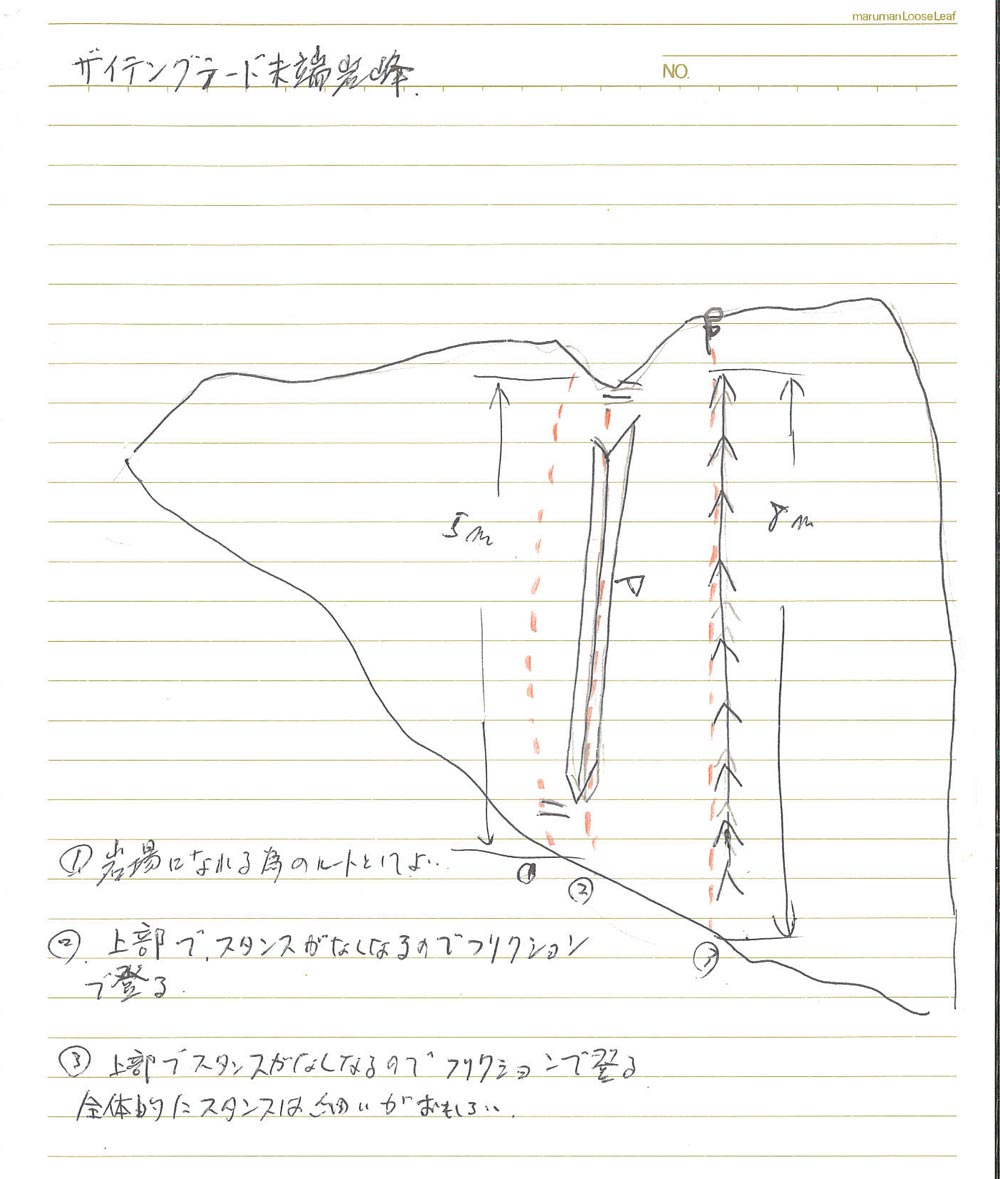 maruman LooseLeaf
ザイテングラード末端岩峰.
NO.
5m
8m
① 岩場になれる為のルートとしてよい.
①
②
② . 上部で、スタンスがなくなるのでフリクション
で登る.
③
③ 上部でスタンスがなくなるのでフリクションで登る
全体的にスタンスは細いがおもしろい.